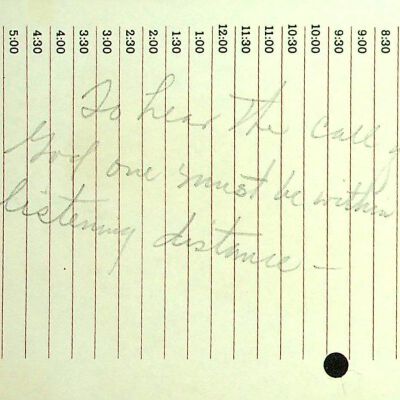 8:30
9:00
9:30
10:00
10:30
11:00
11:30
12:00
1:00
1:30
2:00
2:30
3:00
3:30
4:00
4:30
5:00
To hear the call
God one must be within
listening distance —